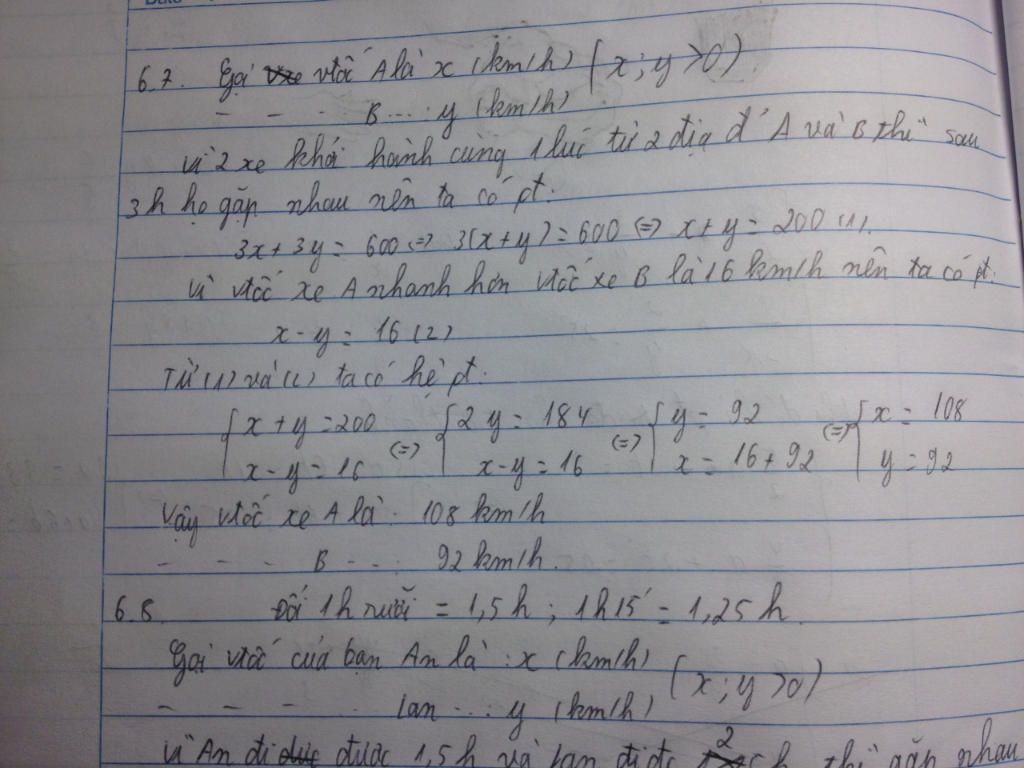 6.7. Gọi vtốc A là x (km/h) (x; y > 0)
- - - B .... y (km/h)
Vì 2 xe khởi hành cùng 1 lúc từ 2 địa đ' A và B thì sau
3h họ gặp nhau nên ta có pt:
3x + 3y = 600 <=> 3(x + y) = 600 <=> x + y = 200 (1).
Vì vtốc xe A nhanh hơn vtốc xe B là 16 km/h nên ta có pt:
x - y = 16 (2)
Từ (1) và (2) ta có hệ pt:
{ x + y = 200 <=> { 2y = 184 <=> { y = 92 <=> { x = 108
x - y = 16 x - y = 16 x = 16 + 92 y = 92
Vậy vtốc xe A là : 108 km/h
- - - B - - : 92 km/h.
6.8. Đổi 1h rưỡi = 1,5 h ; 1h15' = 1,25 h.
Gọi vtốc của bạn An là : x (km/h) (x; y > 0)
- - - - Lan .... y (km/h)
Vì An đi được 1,5h và Lan đi đc 2 h thì gặp nhau